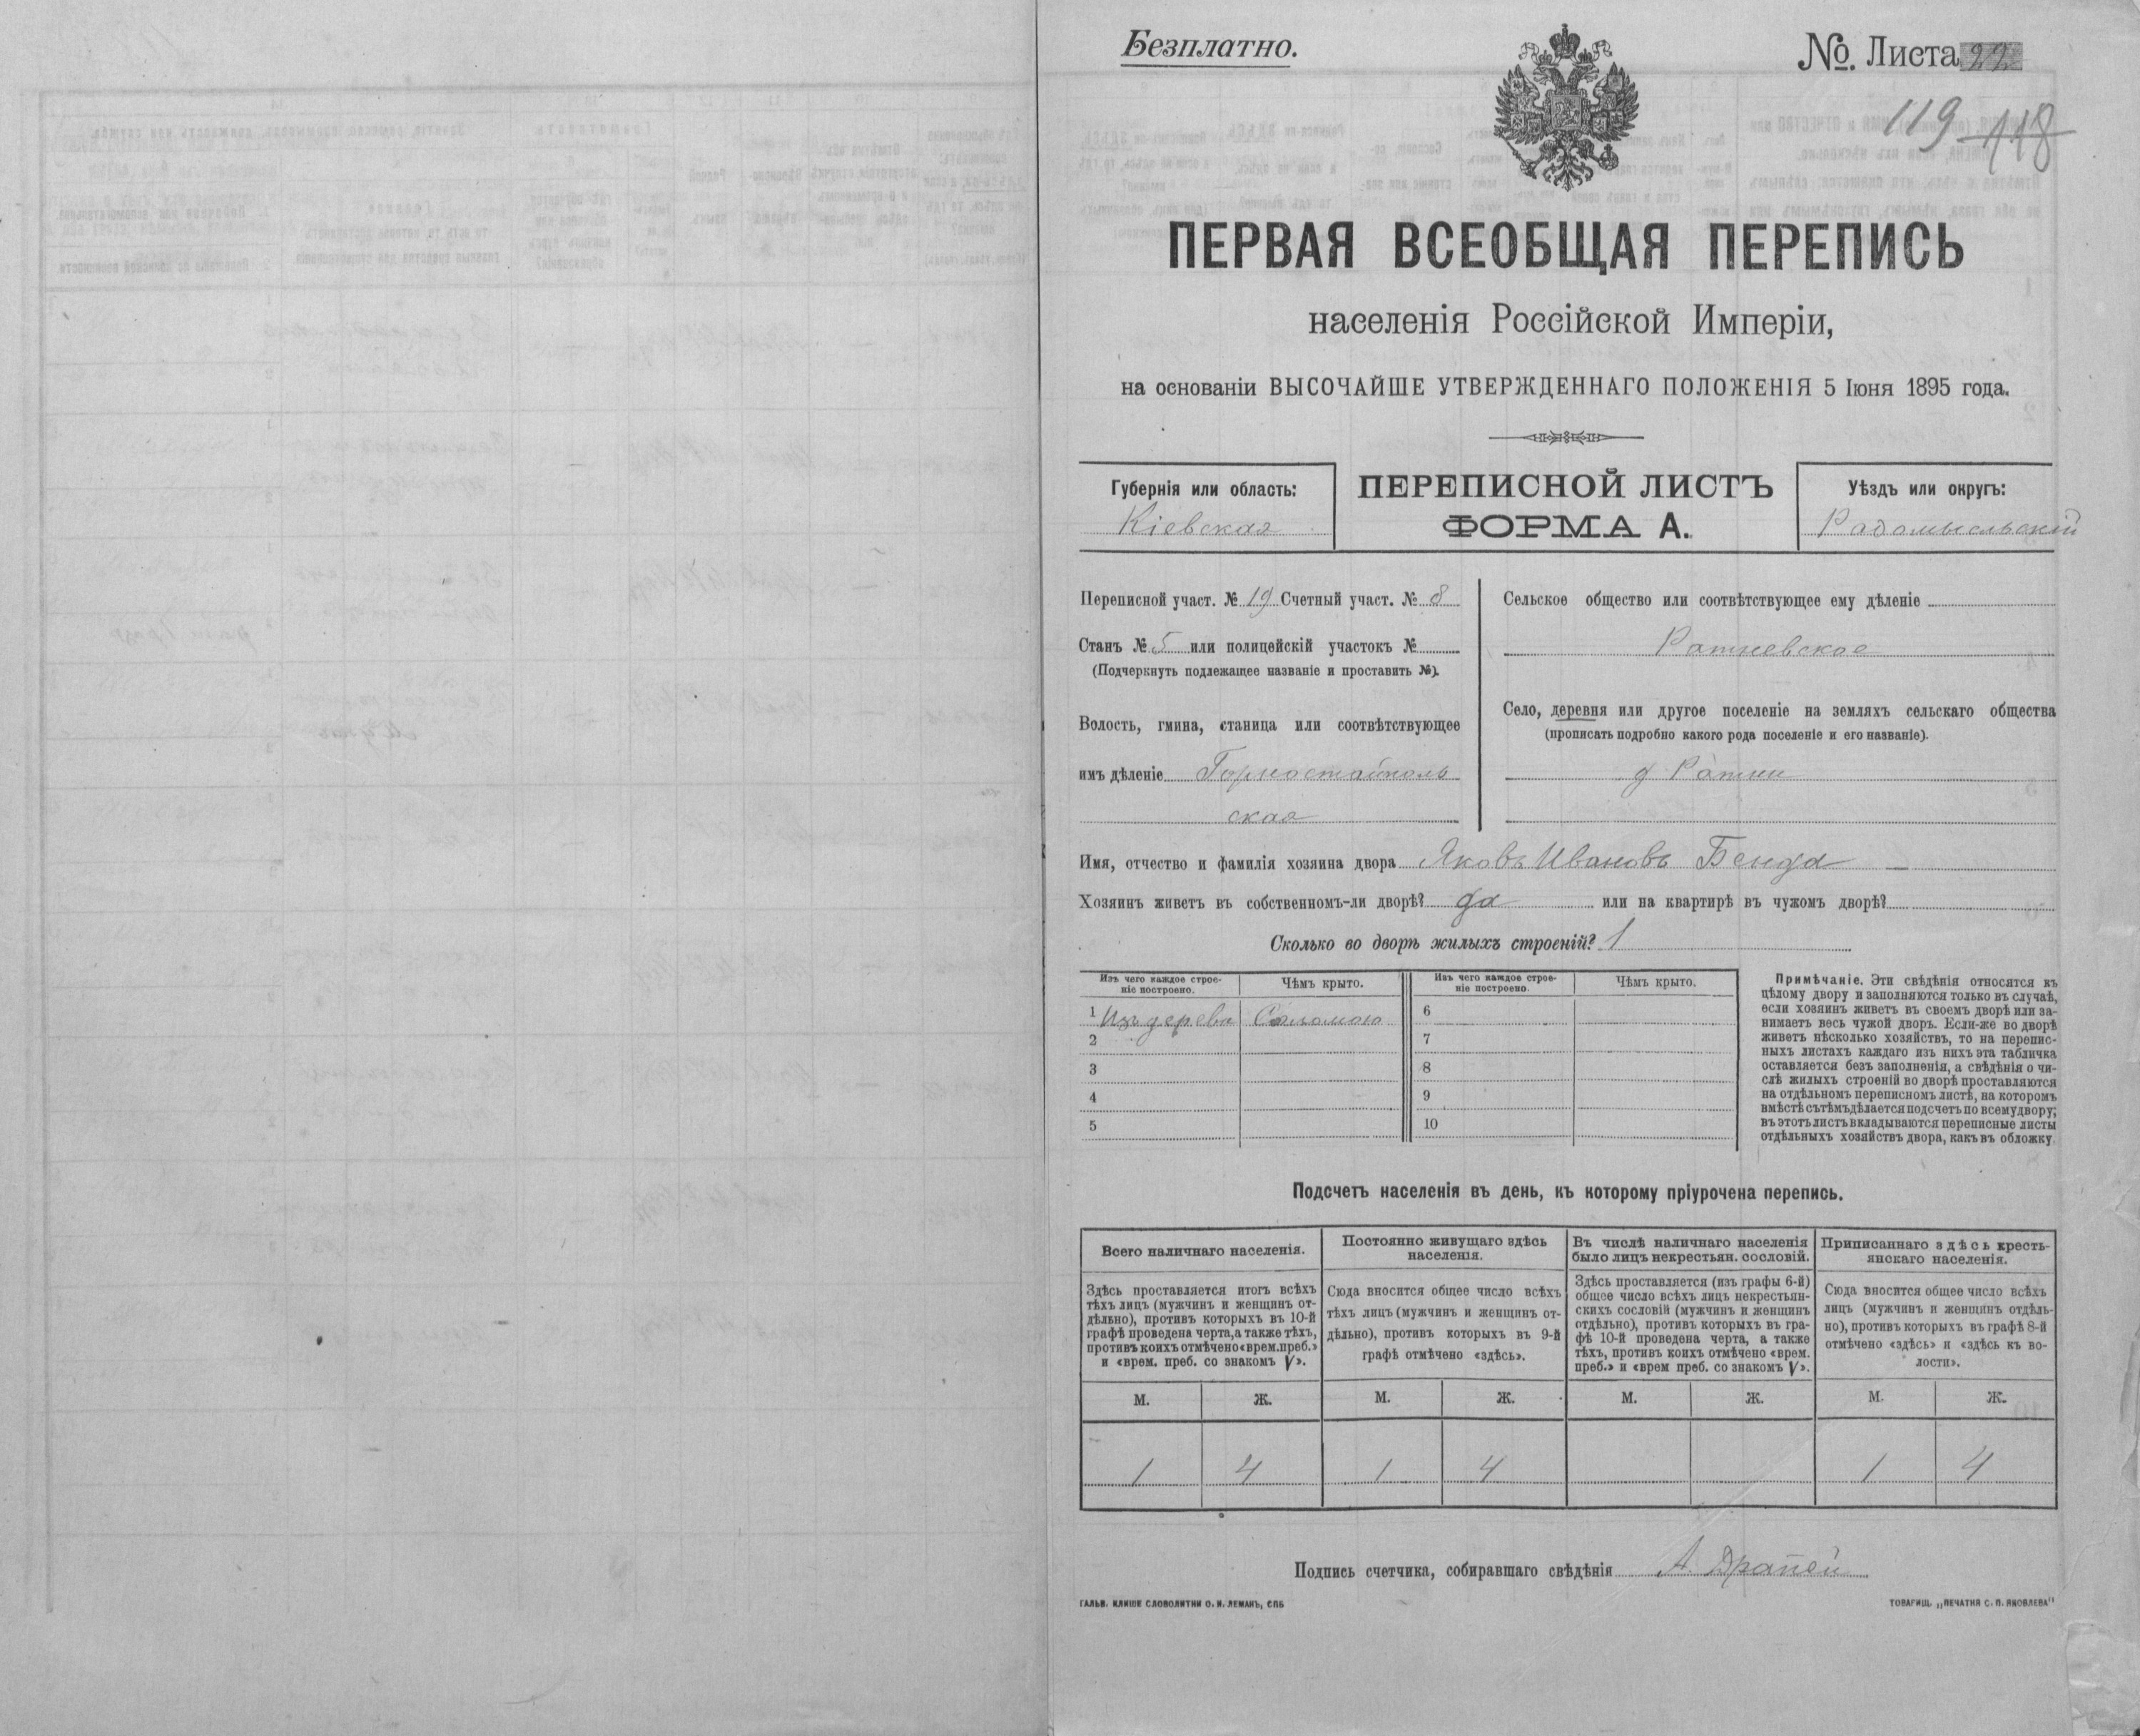 Безплатно.
№. Листа 22
119 118
ПЕРВАЯ ВСЕОБЩАЯ ПЕРЕПИСЬ
населенія Россійской Имперіи,
на основаніи ВЫСОЧАЙШЕ УТВЕРЖДЕННАГО ПОЛОЖЕНІЯ 5 Іюня 1895 года.
Губернія или область:
Кіевская
ПЕРЕПИСНОЙ ЛИСТЪ
ФОРМА А.
Уѣздъ или округъ:
Радомысльскій
Переписной участ. № 19 Счетный участ. № 8
Станъ № 5 или полицейскій участокъ №
(Подчеркнуть подлежащее названіе и проставить №).
Волость, гмина, станица или соотвѣтствующее
имъ дѣленіе Горностайполь
ская
Сельское общество или соотвѣтствующее ему дѣленіе
Ратневское
Село, деревня или другое поселеніе на земляхъ сельскаго общества
(прописать подробно какого рода поселеніе и его названіе).
д Ратни
Имя, отчество и фамилія хозяина двора Яковъ Ивановъ Бенда
Хозяинъ живетъ въ собственномъ-ли дворѣ? да или на квартирѣ въ чужомъ дворѣ?
Сколько во дворѣ жилыхъ строеній? 1
Изъ чего каждое строе-
ніе построено.
Чѣмъ крыто.
Изъ чего каждое строе-
ніе построено.
Чѣмъ крыто.
1 Изъ дерева Соломою 6
2 7
3 8
4 9
5 10
Примѣчаніе. Эти свѣдѣнія относятся къ
цѣлому двору и заполняются только въ случаѣ,
если хозяинъ живетъ въ своемъ дворѣ или за-
нимаетъ весь чужой дворъ. Если-же во дворѣ
живетъ нѣсколько хозяйствъ, то на перепис-
ныхъ листахъ каждаго изъ нихъ эта табличка
оставляется безъ заполненія, а свѣдѣнія о чи-
слѣ жилыхъ строеній во дворѣ проставляются
на отдѣльномъ переписномъ листѣ, на которомъ
вмѣстѣ съ тѣмъ дѣлается подсчетъ по всему двору;
въ этотъ листъ вкладываются переписные листы
отдѣльныхъ хозяйствъ двора, какъ въ обложку.
Подсчетъ населенія въ день, къ которому пріурочена перепись.
Всего наличнаго населенія.
Здѣсь проставляется итогъ всѣхъ
тѣхъ лицъ (мужчинъ и женщинъ от-
дѣльно), противъ которыхъ въ 10-й
графѣ проведена черта, а также тѣхъ,
противъ коихъ отмѣчено «врем. преб.»
и «врем. преб. со знакомъ V».
Постоянно живущаго здѣсь
населенія.
Сюда вносится общее число всѣхъ
тѣхъ лицъ (мужчинъ и женщинъ от-
дѣльно), противъ которыхъ въ 9-й
графѣ отмѣчено «здѣсь».
Въ числѣ наличнаго населенія
было лицъ некрестьян. сословій.
Здѣсь проставляется (изъ графы 6-й)
общее число всѣхъ лицъ некрестьян-
скихъ сословій (мужчинъ и женщинъ
отдѣльно), противъ которыхъ въ гра-
фѣ 10-й проведена черта, а также
тѣхъ, противъ коихъ отмѣчено «врем.
преб.» и «врем преб. со знакомъ V».
Приписаннаго здѣсь кресть-
янскаго населенія.
Сюда вносится общее число всѣхъ
лицъ (мужчинъ и женщинъ отдѣль-
но), противъ которыхъ въ графѣ 8-й
отмѣчено «здѣсь» и «здѣсь къ во-
лости».
М. Ж. М. Ж. М. Ж. М. Ж.
1 4 1 4 1 4
Подпись счетчика, собиравшаго свѣдѣнія А. Драпей
ГАЛЬВ. КЛИШЕ СЛОВОЛИТНИ О. И. ЛЕМАНЪ, СПБ
ТОВАРИЩ. „ПЕЧАТНЯ С. П. ЯКОВЛЕВА"